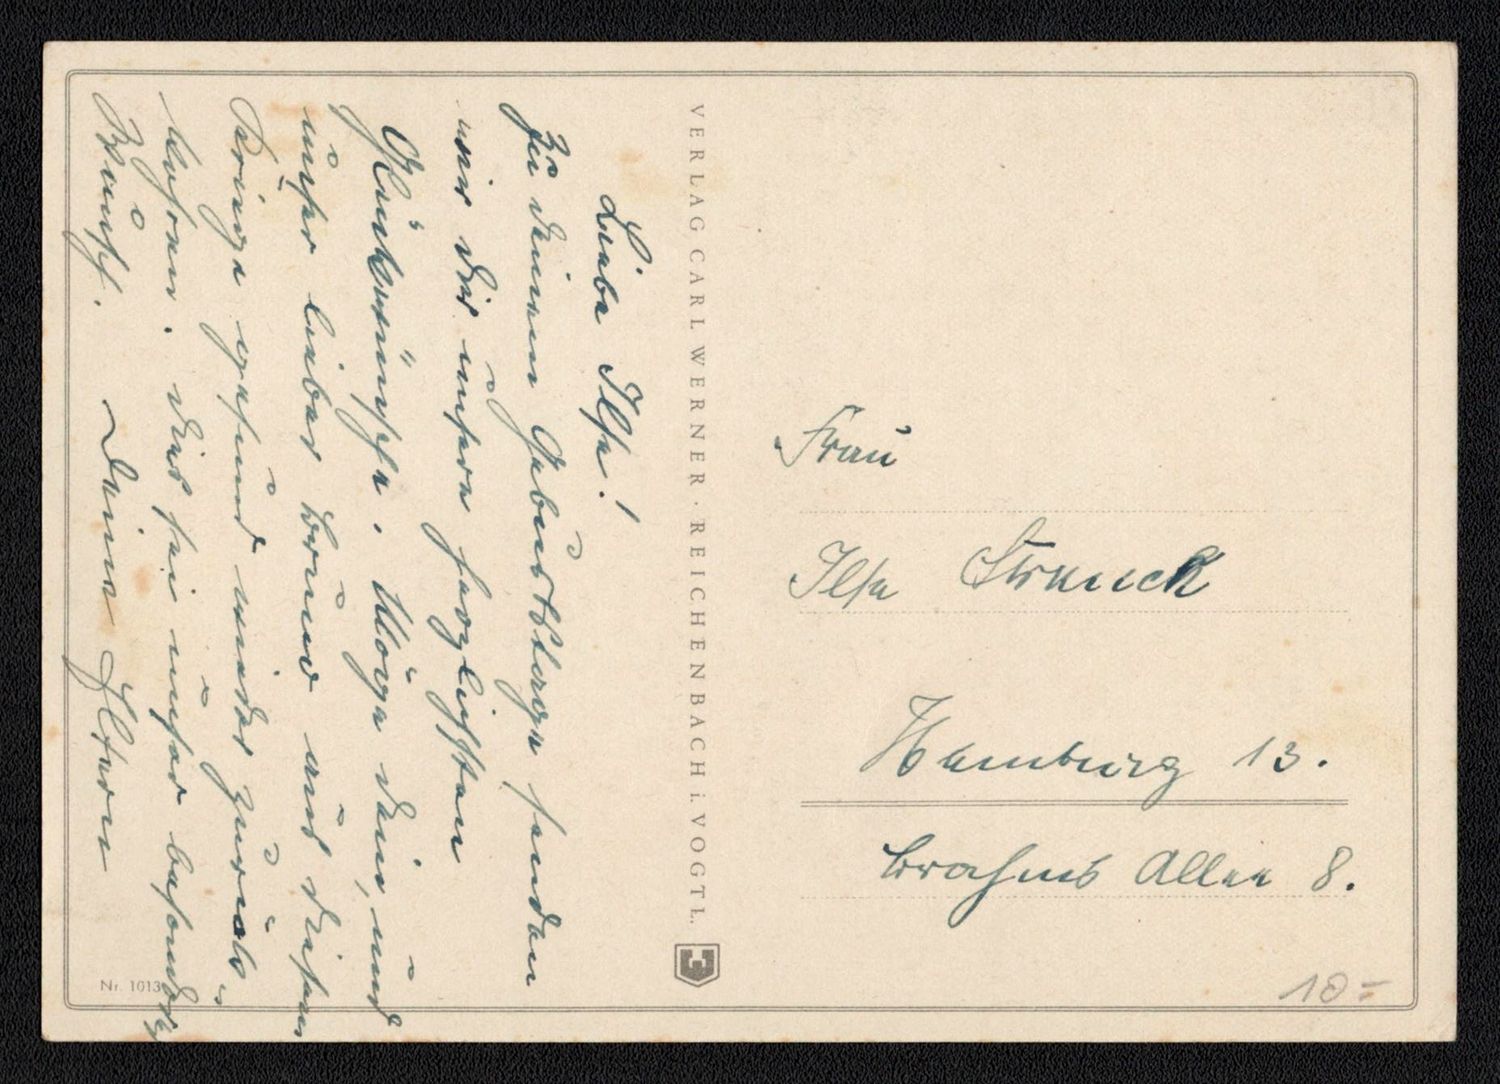 Liebe Ilse!
Zu deinem Geburtstage senden
wir dir unsere herzlichsten
Glückwünsche. Möge dein, und
unser lieber Bruno aus diesem
Kriege gesund wieder zurück-
kehren. Dies sei unser besonderer
Wunsch. Deine Eltern
VERLAG CARL WERNER · REICHENBACH i. VOGTL.
Nr. 1013
Frau
Ilse Struck
Hamburg 13.
Brahms Allee 8.
10=